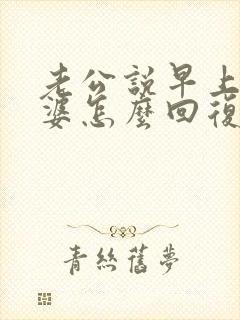 老公説早上
婆怎麼回復
青絲舊夢